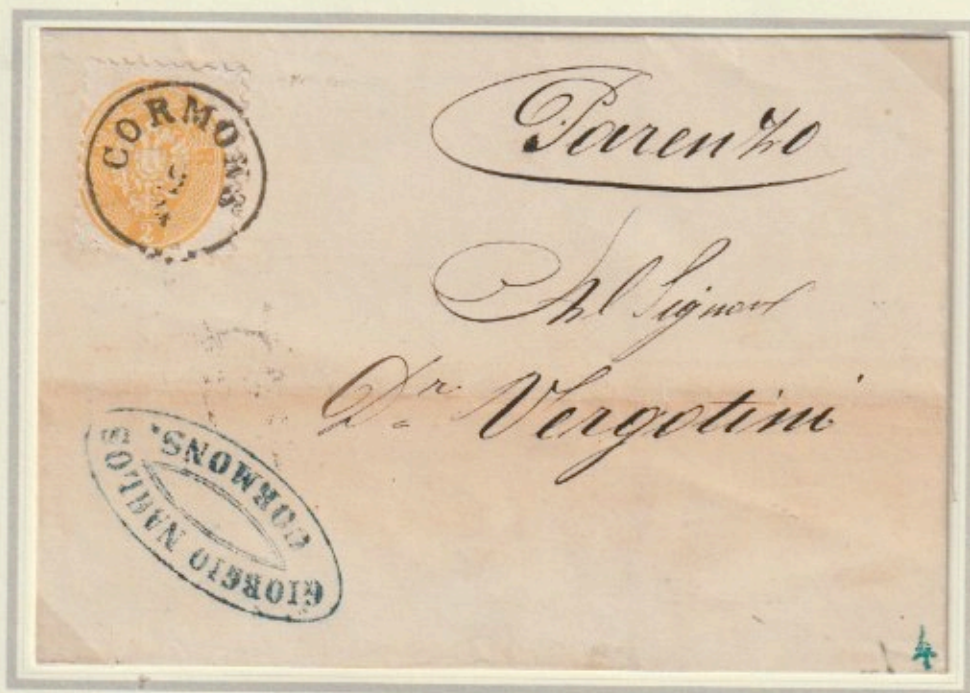 CORMONS
2
Parenzo
Al Signor
Dr. Vergotini
GIORGIO NAGLOS
CORMONS.